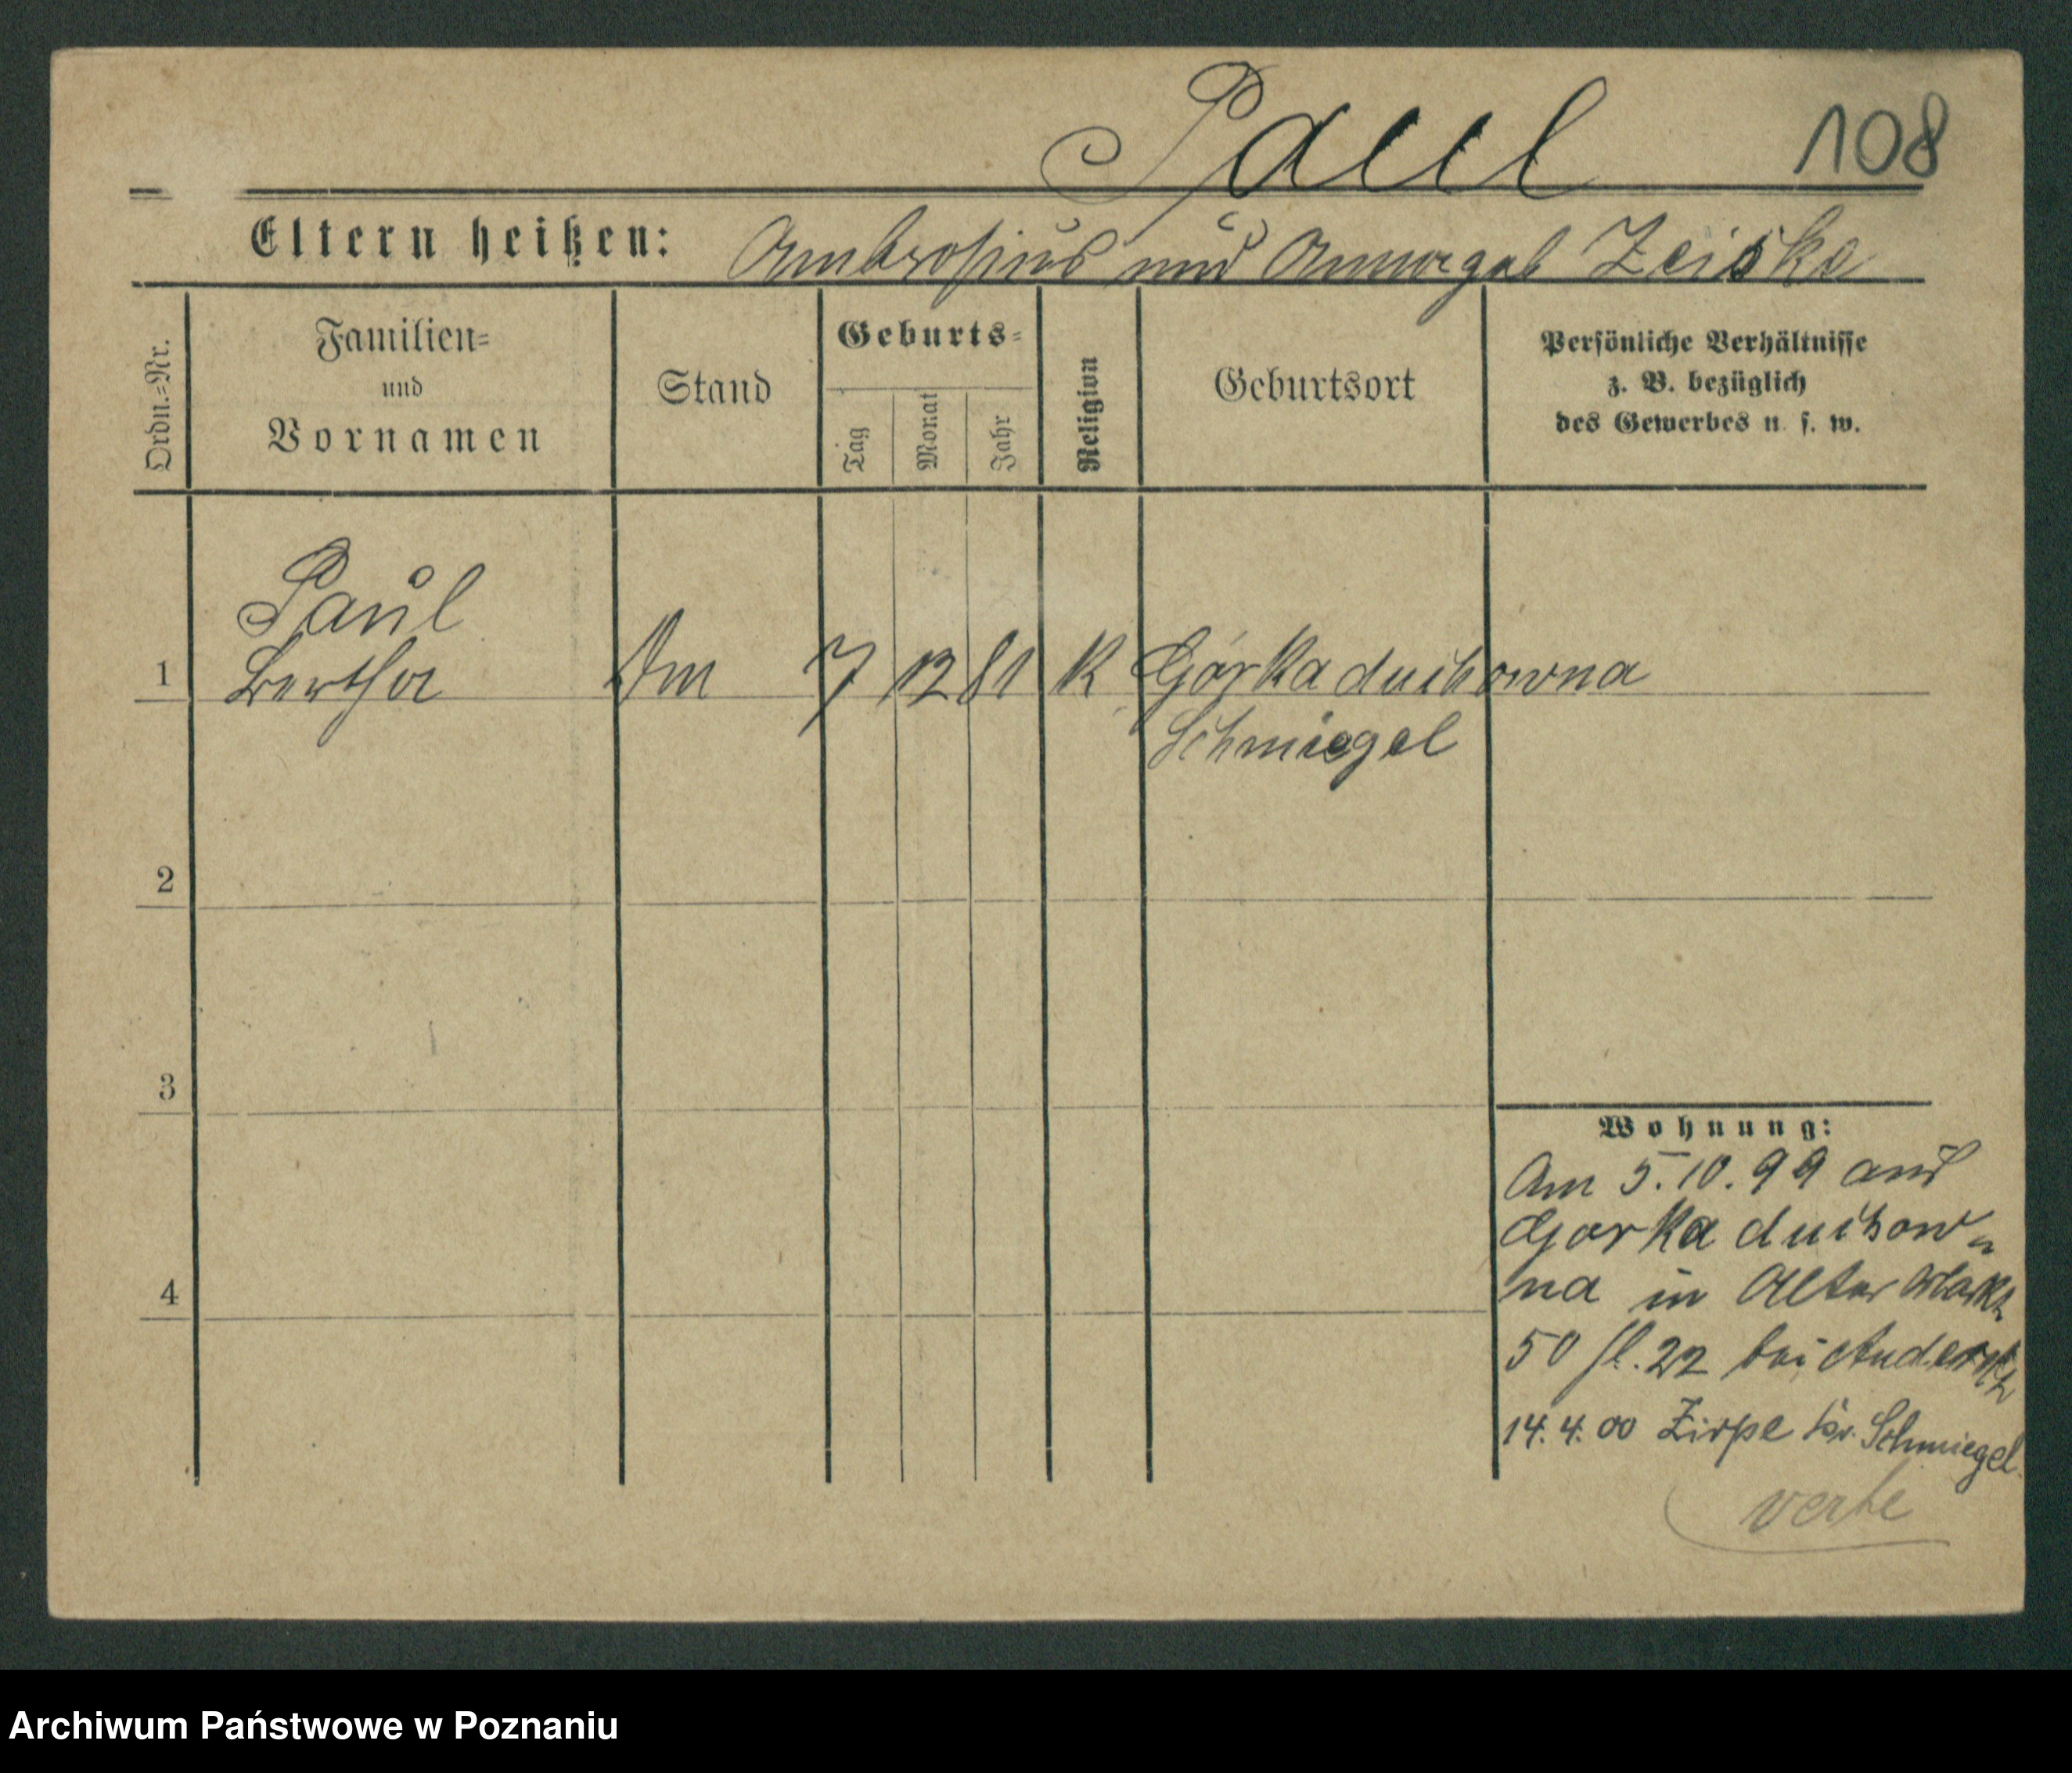 Paul 108
Eltern heißen: Ambrosius und geb Zeiske
Ordn.=Nr.
Familien=
und
Vornamen
Stand
Geburts=
Tag
Monat
Jahr
Religion
Geburtsort
Persönliche Verhältnisse
z. B. bezüglich
des Gewerbes u. s. w.
Paul
1 Bertha Dm 7 12 81 K Górka duchowna
Schmiegel
2
3
4
Wohnung:
Am 5.10.99 aus
Gorka duchow=
na in Alter Markt
50 fl. 22 bei
14.4.00 Zirpe Kr. Schmiegel.
verte
Archiwum Państwowe w Poznaniu